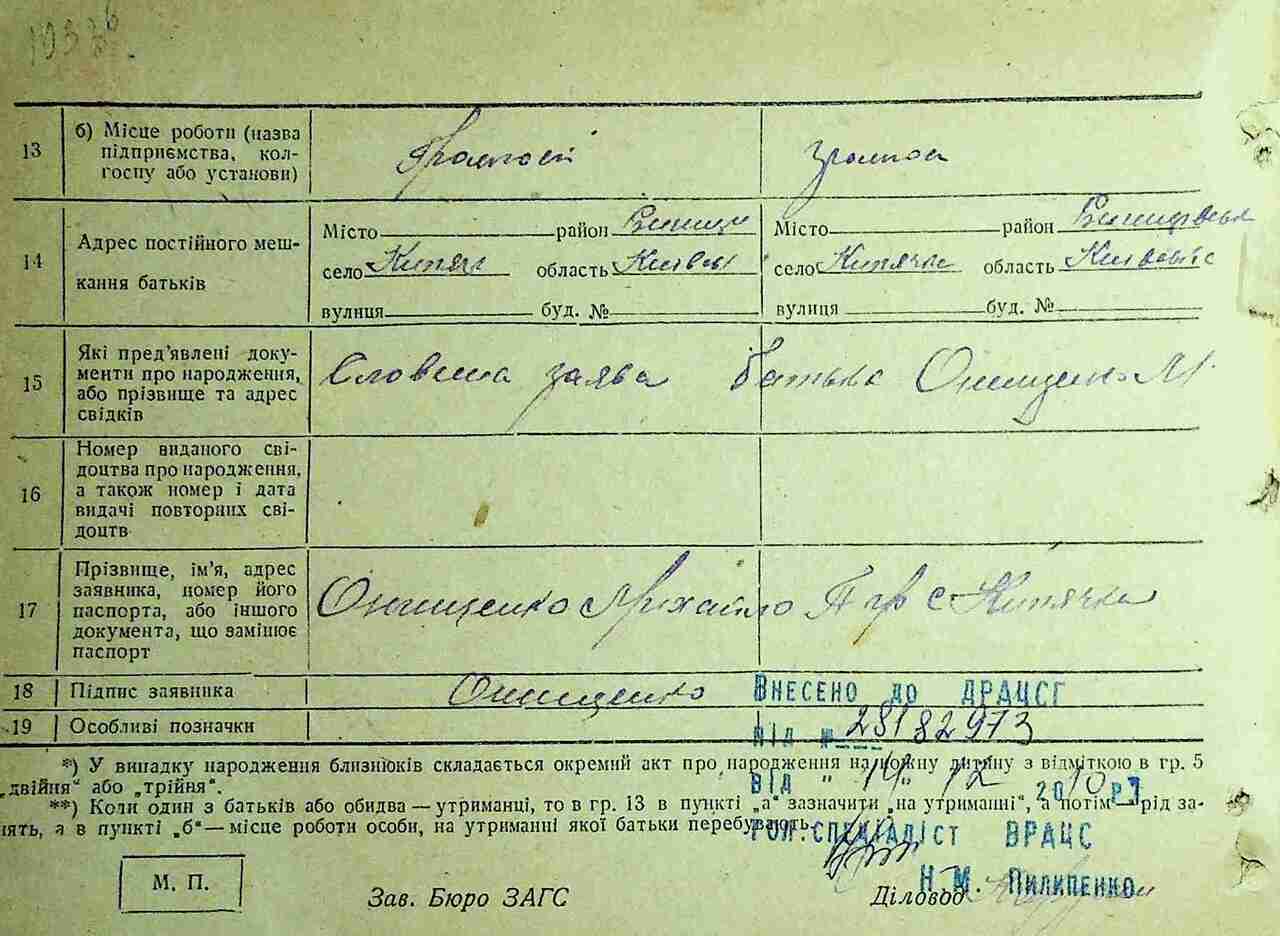 13
б) Місце роботи (назва
підприємства, кол-
госпу або установи)
14
Адрес постійного меш-
кання батьків
Місто район
село область
вулиця буд. №
Місто район
село Кипячка область
вулиця буд. №
15
Які пред'явлені доку-
менти про народження,
або прізвище та адрес
свідків
Словесна заява батька Онищенко М.
16
Номер виданого сві-
доцтва про народження,
а також номер і дата
видачі повторних сві-
доцтв
17
Прізвище, ім'я, адрес
заявника, номер його
паспорта, або іншого
документа, що замінює
паспорт
Онищенко Михайло с. Кипячка
18 Підпис заявника Онищенко
19 Особливі позначки
ВНЕСЕНО ДО ДРАЦСГ
ПІД № 28182973
ВІД " 14 " 12 2010 р
*) У випадку народження близнюків складається окремий акт про народження на кожну дитину з відміткою в гр. 5
„двійня“ або „трійня“.
**) Коли один з батьків або обидва — утриманці, то в гр. 13 в пункті „а“ зазначити „на утриманні“, а потім — рід за-
нять, а в пункті „б“ — місце роботи особи, на утриманні якої батьки перебувають.
ГОЛ.СПЕЦІАЛІСТ ВРАЦС
Н.М. ПИЛИПЕНКО
М. П.
Зав. Бюро ЗАГС
Діловод